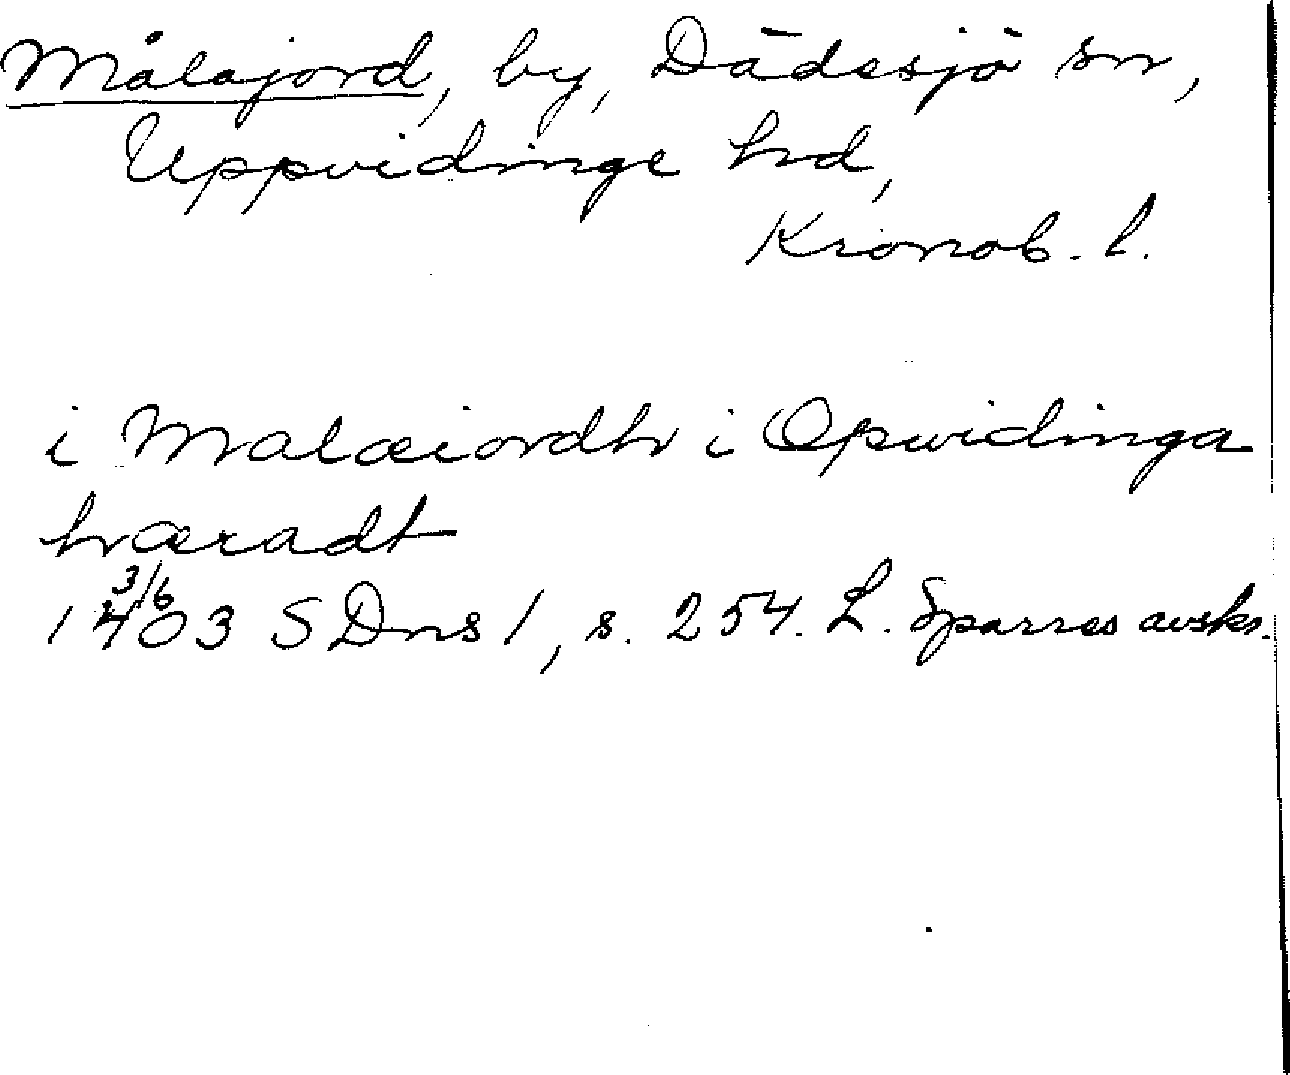 Målajord, by, Dädesjö sn,
Uppvidinge hd,
Kronob. l.
i Malæiordh i Opwidinga
hæradt
3/6
1403 SDns 1, s. 254. L. Sparres avskr.